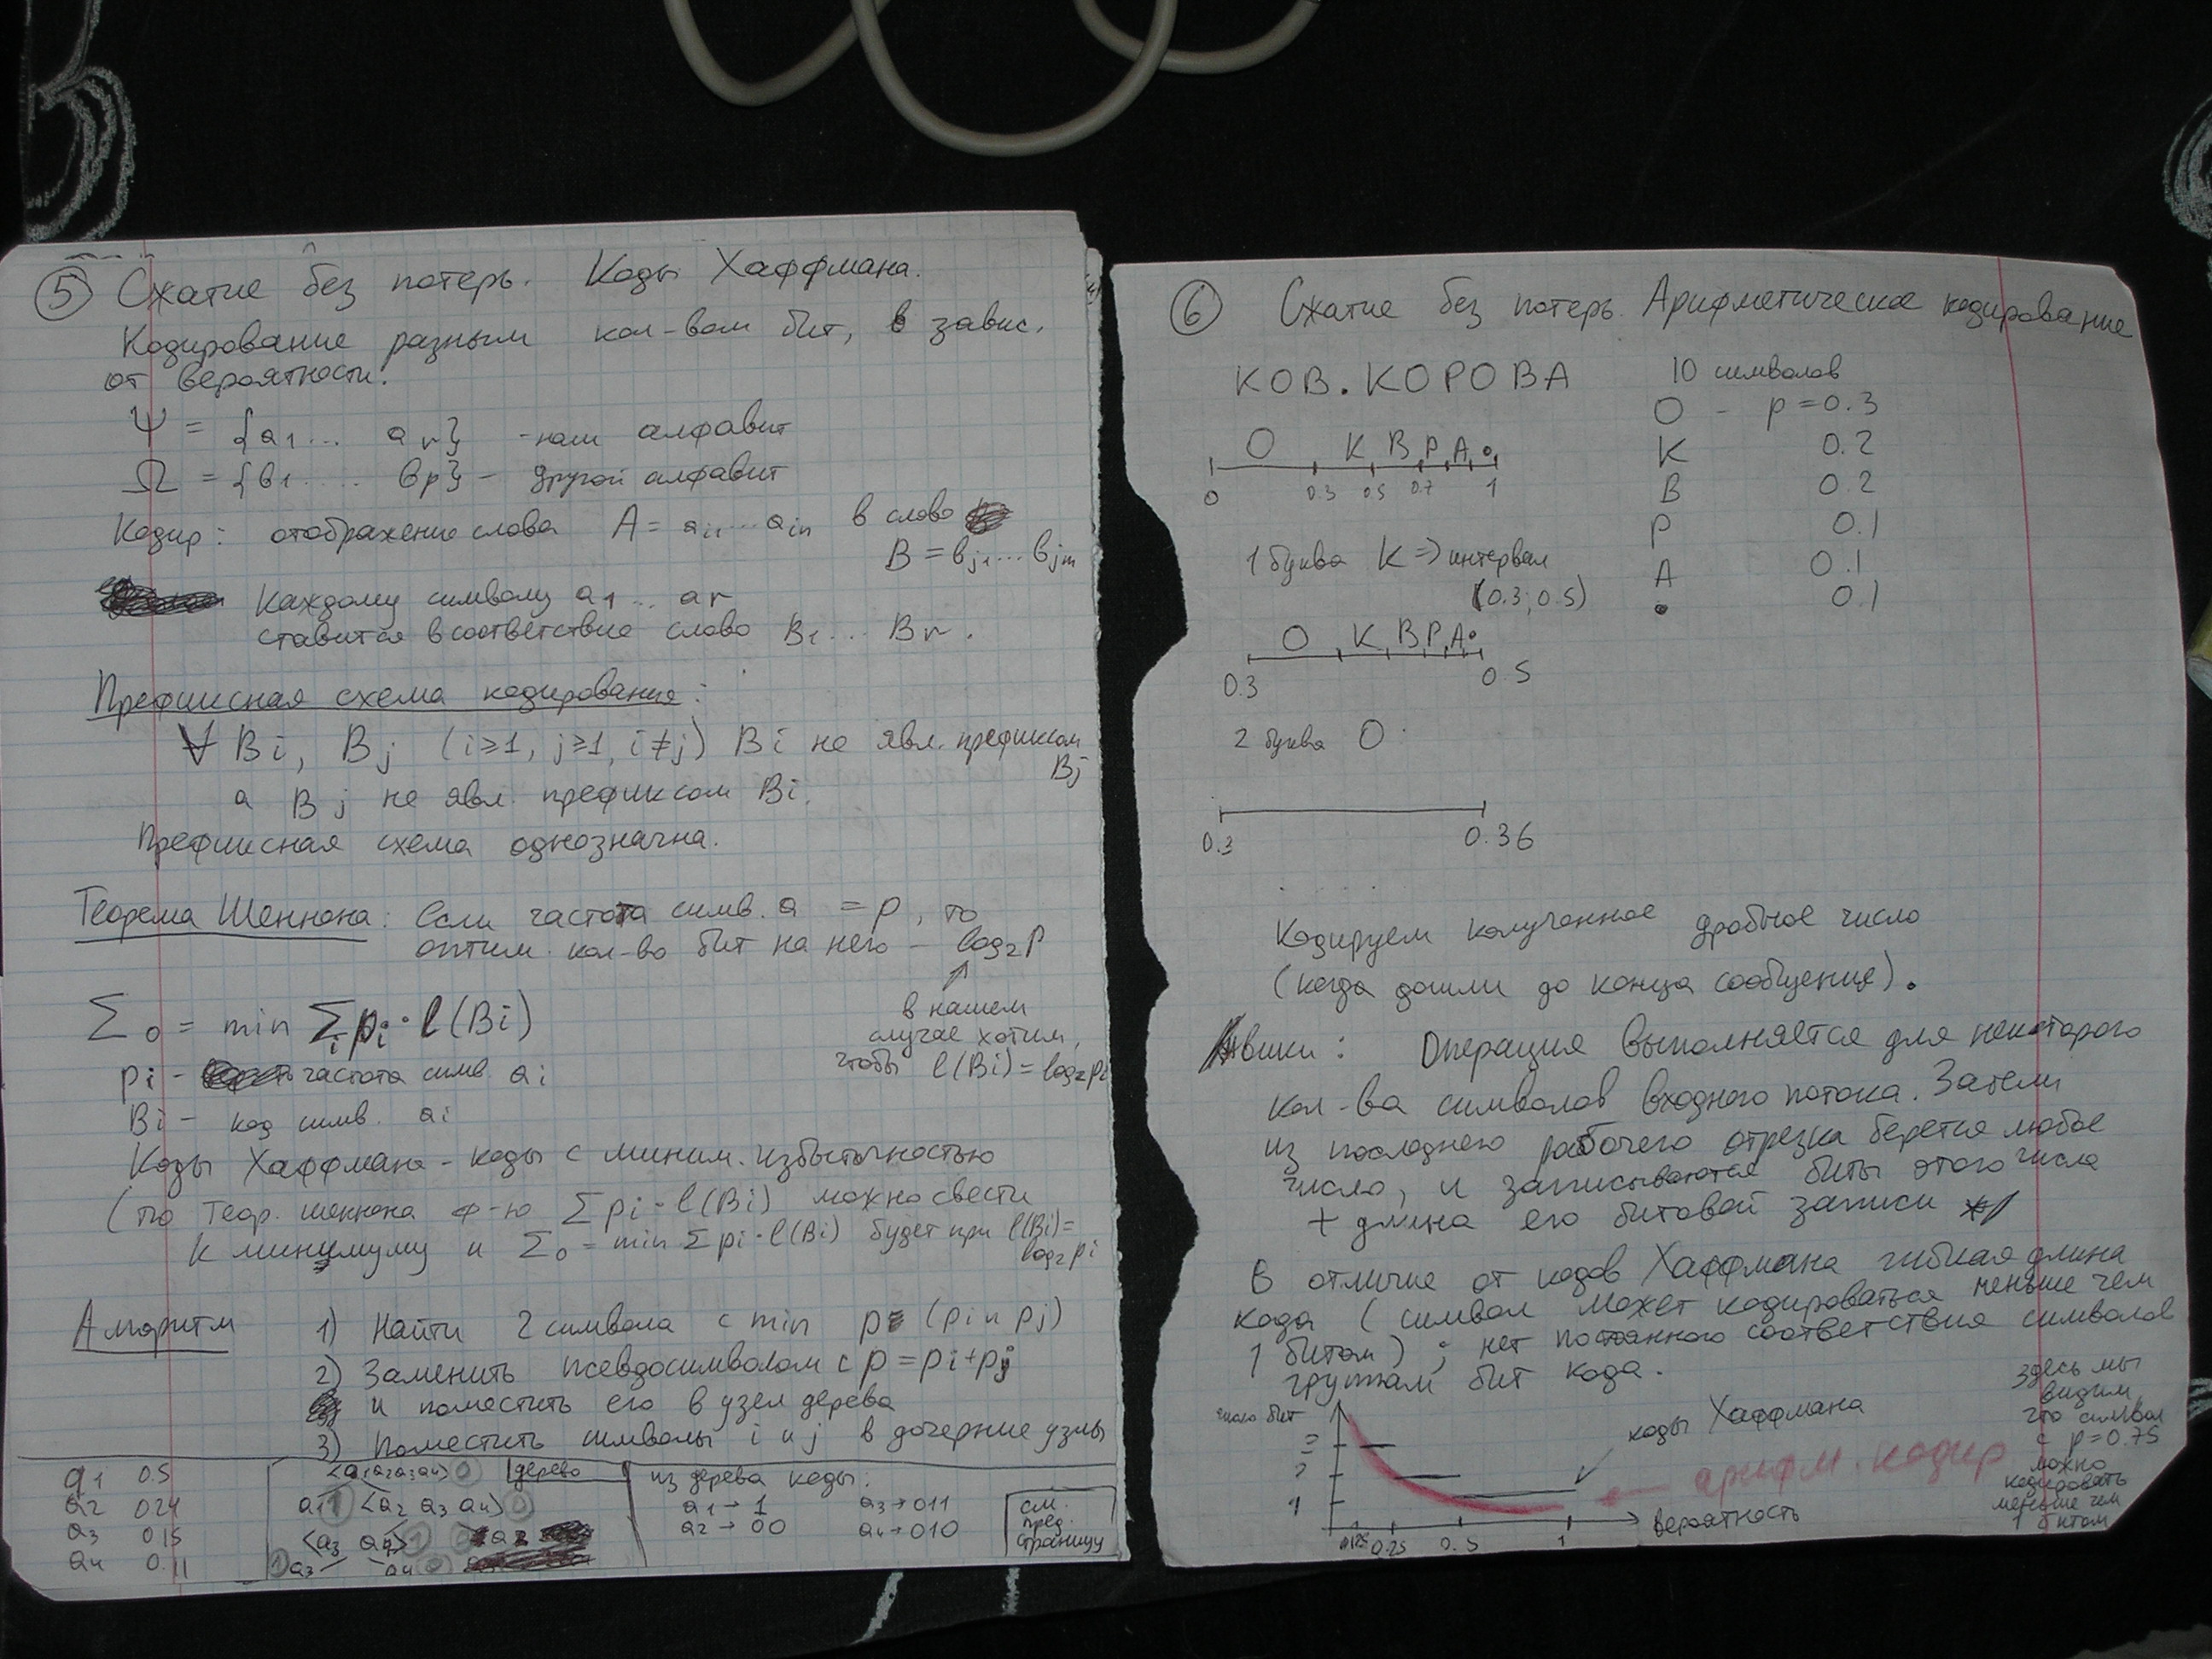 5 Сжатие без потерь. Коды Хаффмана.
Кодирование разным кол-вом бит, в завис.
от вероятности.
Ψ = {a1... ar} - наш алфавит
Ω = {b1.... bp} - другой алфавит
Кодир: отображение слова A = ai1...ain в слово
B = bj1...bjm
Каждому символу a1...ar
ставится в соответствие слово B1...Br.
Префиксная схема кодирования:
∀ Bi, Bj (i≥1, j≥1, i≠j) Bi не явл. префиксом
Bj
а Bj не явл. префиксом Bi.
Префиксная схема однозначна.
Теорема Шеннона: Если частота симв. a = p, то
оптим. кол-во бит на него - log2p
в нашем
случае хотим,
чтобы l(Bi) = log2pi
Σ0 = min Σi pi·l(Bi)
pi - частота симв. ai
Bi - код симв. ai
Коды Хаффмана - коды с миним. избыточностью
(по Теор. Шеннона ф-ю Σpi·l(Bi) можно свести
к минимуму и Σ0 = min Σpi·l(Bi) будет при l(Bi)=
log2pi
Алгоритм 1) Найти 2 символа с min p (pi и pj)
2) Заменить псевдосимволом с p = pi+pj
и поместить его в узел дерева
3) Поместить символы i и j в дочерние узлы
a1 0.5
a2 0.24
a3 0.15
a4 0.11
<a1a2a3a4> 0 дерево
a1 1 <a2 a3 a4> 0
<a3 a4> 1 a2
1 a3 a4 0
из дерева коды:
a1→1 a3→011
a2→00 a4→010
см.
пред.
страницу
6 Сжатие без потерь. Арифметическое кодирование
КОВ.КОРОВА 10 символов
О - p=0.3
К 0.2
В 0.2
Р 0.1
А 0.1
. 0.1
О К В Р А .
0 0.3 0.5 0.7 1
1 буква К => интервал
(0.3; 0.5)
О К В Р А .
0.3 0.5
2 буква О
0.3 0.36
Кодируем полученное дробное число
(когда дошли до конца сообщения).
вики: Операция выполняется для некоторого
кол-ва символов входного потока. Затем
из последнего рабочего отрезка берется любое
число, и записываются биты этого числа
+ длина его битовой записи
В отличие от кодов Хаффмана гибкая длина
кода (символ может кодироваться меньше чем
1 битом); нет постоянного соответствия символов
группам бит кода.
число бит
3
2
1
0.125 0.25 0.5 1
вероятность
коды Хаффмана
арифм. кодир
здесь мы
видим,
что символ
с p=0.75
можно
кодировать
меньше чем
1 битом